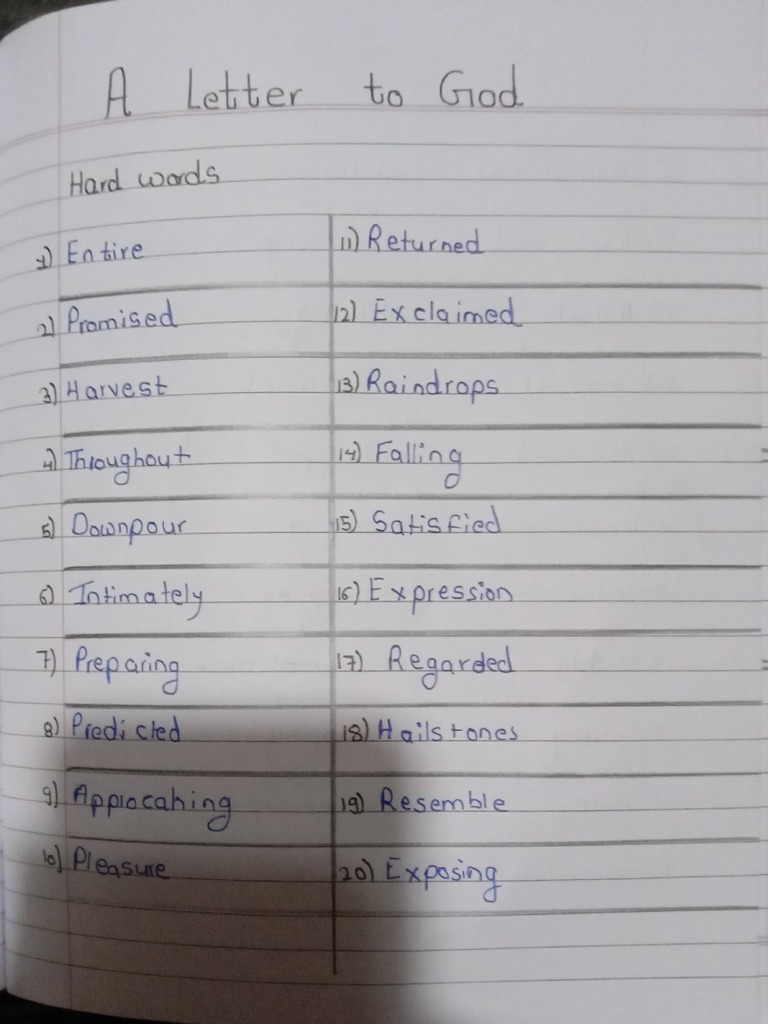 A Letter to God
Hard words
1) Entire
2) Promised
3) Harvest
4) Throughout
5) Downpour
6) Intimately
7) Preparing
8) Predicted
9) Approcahing
10) Pleasure
11) Returned
12) Exclaimed
13) Raindrops
14) Falling
15) Satisfied
16) Expression
17) Regarded
18) Hailstones
19) Resemble
20) Exposing